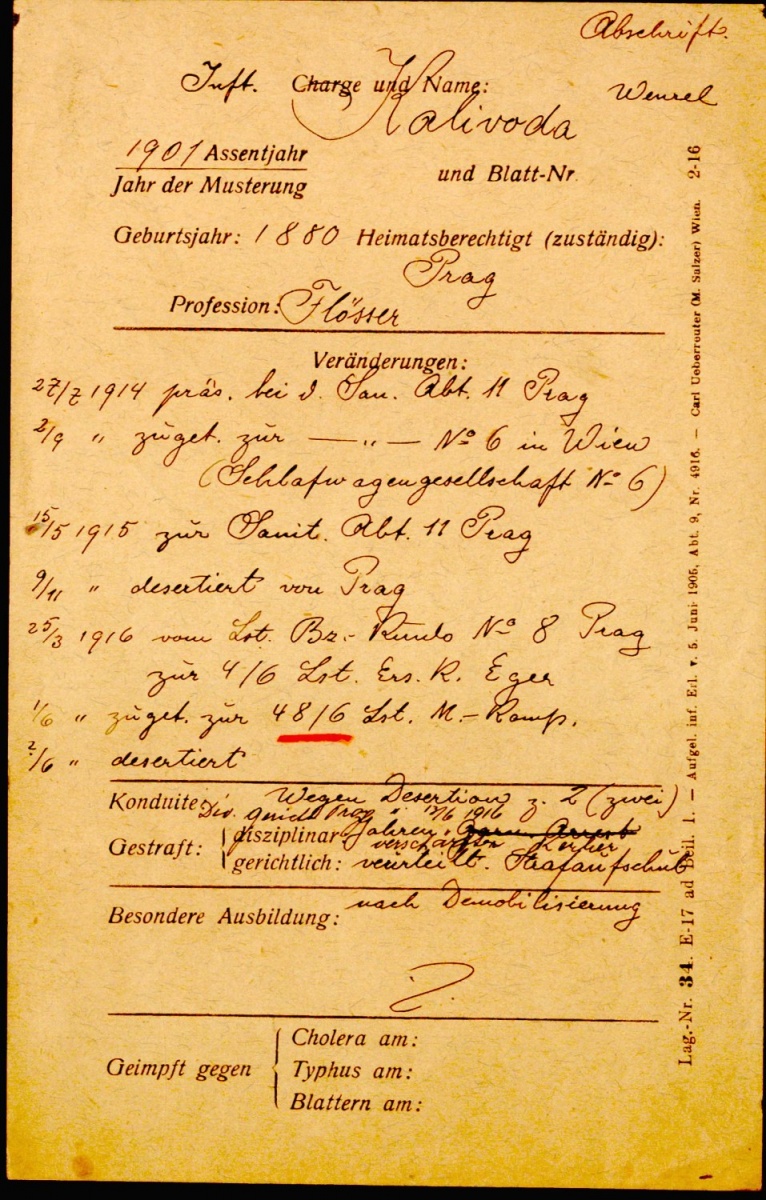 Abschrift.
Inft. Charge und Name: Wenzel
Kalivoda
1901 Assentjahr
Jahr der Musterung
und Blatt-Nr.
Geburtsjahr: 1880 Heimatsberechtigt (zuständig):
Prag
Profession: Flösser
Veränderungen:
27/7 1914 präs. bei d. San. Abt. 11 Prag
2/9 " zuget. zur — " — No 6 in Wien
(Schlafwagengesellschaft No 6)
15/5 1915 zur Sanit. Abt. 11 Prag
9/11 " desertiert von Prag
25/3 1916 vom Lst. Bz.-Kmdo No 8 Prag
zur 4/6 Lst. Ers. K. Eger
1/6 " zuget. zur 48/6 Lst. M.-Komp.
2/6 " desertiert
Konduite: Wegen Desertion z. 2 (zwei)
Div. Gericht Prag 1916
Gestraft: disziplinar: Jahren
verschärften Kerker
gerichtlich: verurteilt. Strafaufschub
nach Demobilisierung
Besondere Ausbildung:
Geimpft gegen
Cholera am:
Typhus am:
Blattern am:
Lag.-Nr. 34. E-17 ad Beil. 1. — Aufgel. inf. Erl. v. 5. Juni 1905, Abt. 9, Nr. 4916. — Carl Ueberreuter (M. Salzer) Wien. 2-16